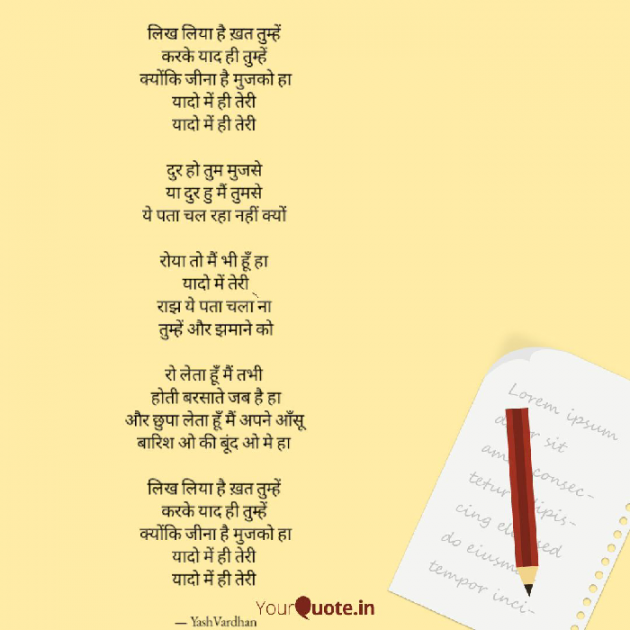 लिख लिया है ख़त तुम्हें
करके याद ही तुम्हें
क्योंकि जीना है मुजको हा
यादो में ही तेरी
यादो में ही तेरी
दुर हो तुम मुजसे
या दुर हु मैं तुमसे
ये पता चल रहा नहीं क्यों
रोया तो मैं भी हूँ हा
यादो में तेरी
राझ ये पता चला ना
तुम्हें और झमाने को
रो लेता हूँ मैं तभी
होती बरसाते जब है हा
और छुपा लेता हूँ मैं अपने आँसू
बारिश ओ की बूंद ओ मे हा
लिख लिया है ख़त तुम्हें
करके याद ही तुम्हें
क्योंकि जीना है मुजको हा
यादो में ही तेरी
यादो में ही तेरी
— YashVardhan
YourQuote.in
Lorem ipsum
sit
consec-
cing
sed
do eiusm
tempor inci-